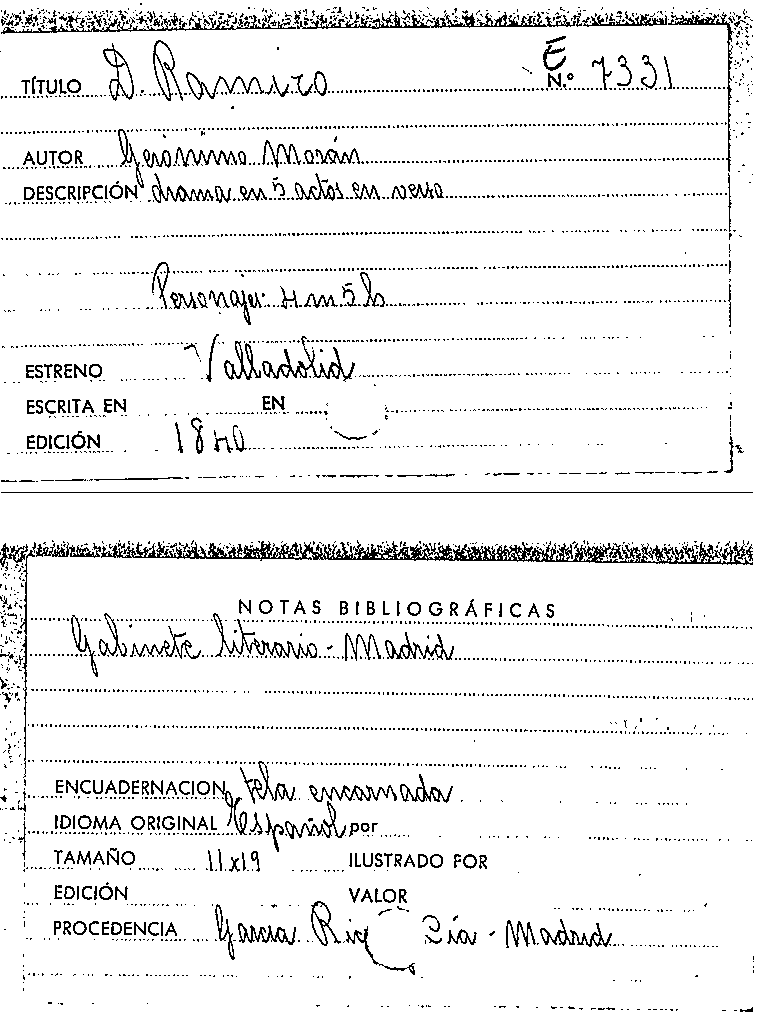 TÍTULO D. Ramiro E N.º 7331
AUTOR Gerónimo Morán
DESCRIPCIÓN drama en 5 actos en verso
Personajes: 4 m 5 h
ESTRENO Valladolid
ESCRITA EN EN
EDICIÓN 1840
NOTAS BIBLIOGRÁFICAS
Gabinete literario - Madrid
ENCUADERNACION tela encarnada
IDIOMA ORIGINAL Español por
TAMAÑO 11x19 ILUSTRADO POR
EDICIÓN VALOR
PROCEDENCIA García Rico Cía - Madrid